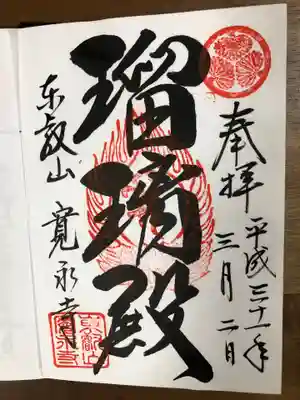 奉拝 平成三十一年
三月二日
瑠璃殿
东叡山 寛永寺